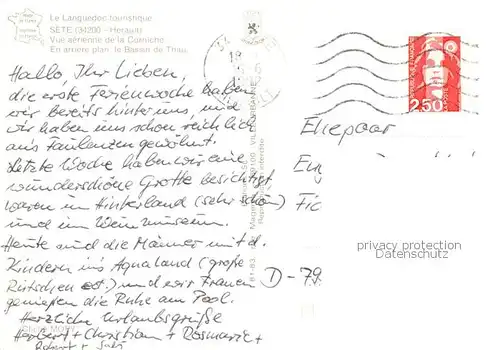 Le Languedoc touristique
SÈTE (34200 - Hérault)
Vue aérienne de la Corniche
En arrière plan, le Bassin de Thau
Hallo, Ihr Lieben,
die erste Ferienwoche haben
wir bereits hinter uns, und
wir haben uns schon reichlich
ans Faulenzen gewöhnt.
Letzte Woche haben wir eine
wunderschöne Grotte besichtigt,
waren im Hinterland (sehr schön)
und im Weinmuseum.
Heute sind die Männer mit d.
Kindern ins Aqualand (große
Rutschen etc.) und wir Frauen
genießen die Ruhe am Pool.
Herzliche Urlaubsgrüße
Herbert + Christian + Rosmarie +
Robert +
2,50
Ehepaar
privacy protection
Datenschutz
D - 79